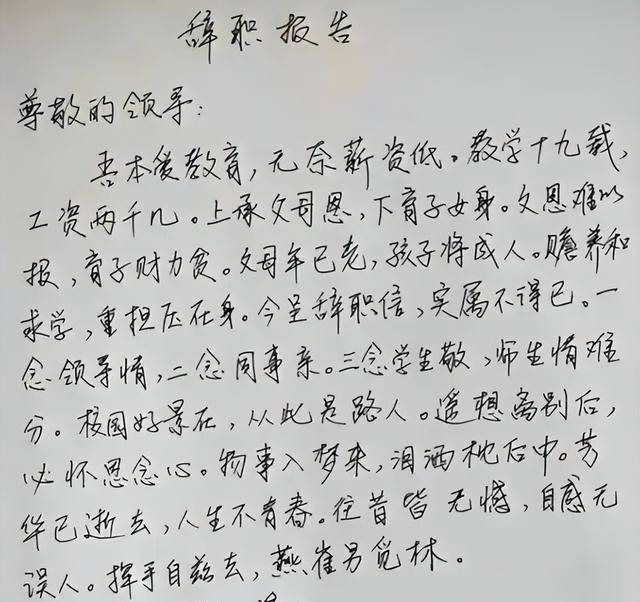 辞职报告
尊敬的领导:
吾本爱教育,无奈薪资低。教学十九载,
工资两千几。上承父母恩,下育子女身。父恩难以
报,育子财力贫。父母年已老,孩子将成人。赡养和
求学,重担压在身。今呈辞职信,实属不得已。一
念领导情,二念同事亲。三念学生敬,师生情难
分。校园好景在,从此是路人。遥想离别后,
必怀思念心。物事入梦来,泪洒枕后中。芳
华已逝去,人生不青春。往昔皆无憾,自感无
误人。挥手自兹去,燕雀另觅林。